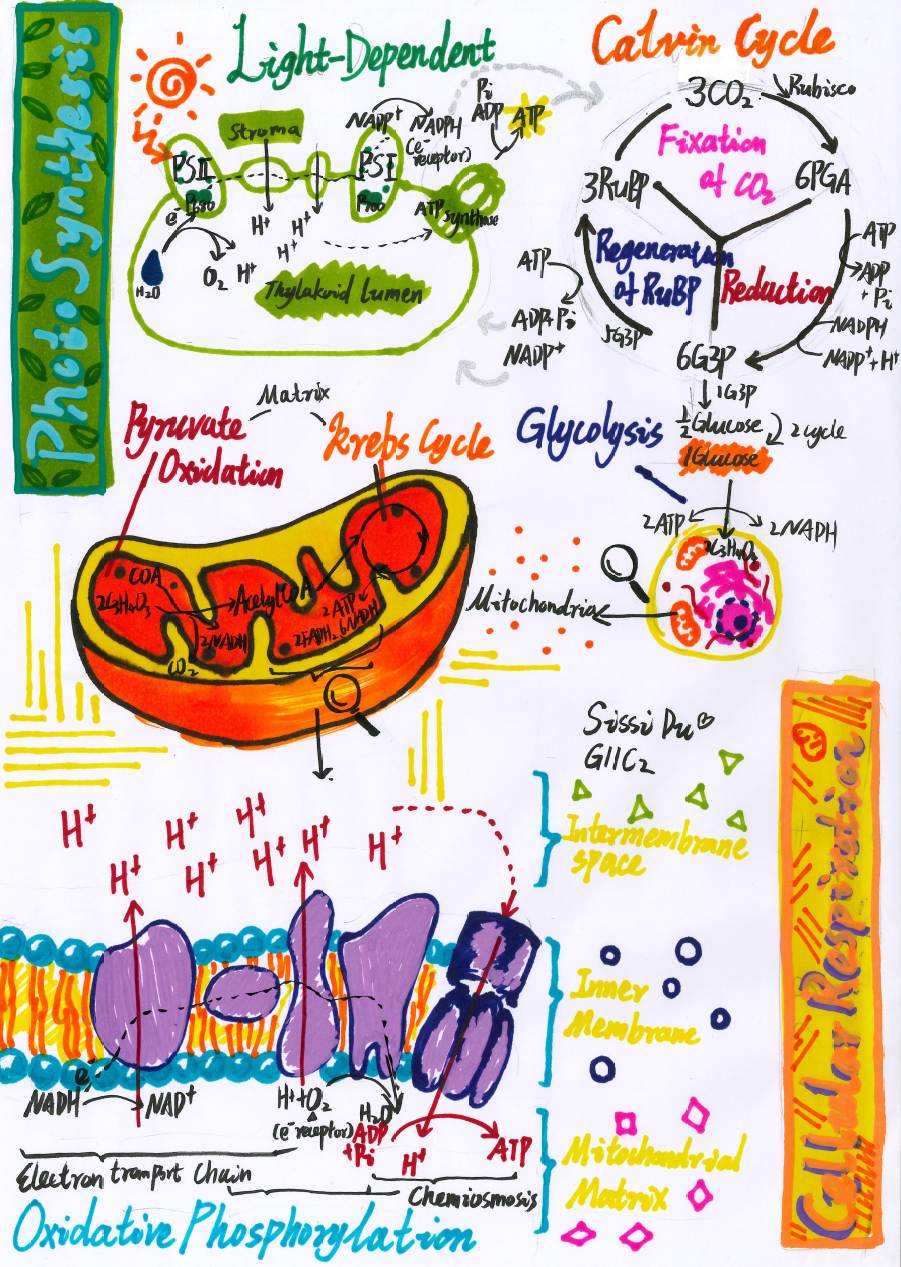 PhotoSynthesis
Light-Dependent
Stroma
PSII
P680
e⁻
H₂O
O₂
H⁺
H⁺
H⁺
H⁺
Thylakoid Lumen
NADP⁺
NADPH
(e⁻
receptor)
PSI
P700
Pi
ADP
ATP
ATP synthase
Calvin Cycle
3CO₂
Rubisco
Fixation
of CO₂
3RuBP
6PGA
Regeneration
of RuBP
Reduction
ATP
ADP
+ Pi
NADPH
NADP⁺+H⁺
ATP
ADP+Pi
NADP⁺
5G3P
6G3P
1G3P
½Glucose
2 cycle
1Glucose
Glycolysis
2ATP
2NADH
Mitochondria
Matrix
Pyruvate
Oxidation
Krebs Cycle
COA
2C₃H₄O₃
Acetyl COA
2NADH
CO₂
2ATP
2FADH₂ 6NADH
2C₃H₄O₃
Sissi Du♡
G11C2
H⁺
H⁺
H⁺
H⁺
H⁺
H⁺
H⁺
H⁺
Intermembrane
space
Inner
Membrane
Mitochondrial
Matrix
e⁻
NADH
NAD⁺
H⁺+O₂
(e⁻receptor)
H₂O
ADP
+Pi
H⁺
ATP
Electron tramport Chain
Chemiosmosis
Oxidative Phosphorylation
Cellular Respiration